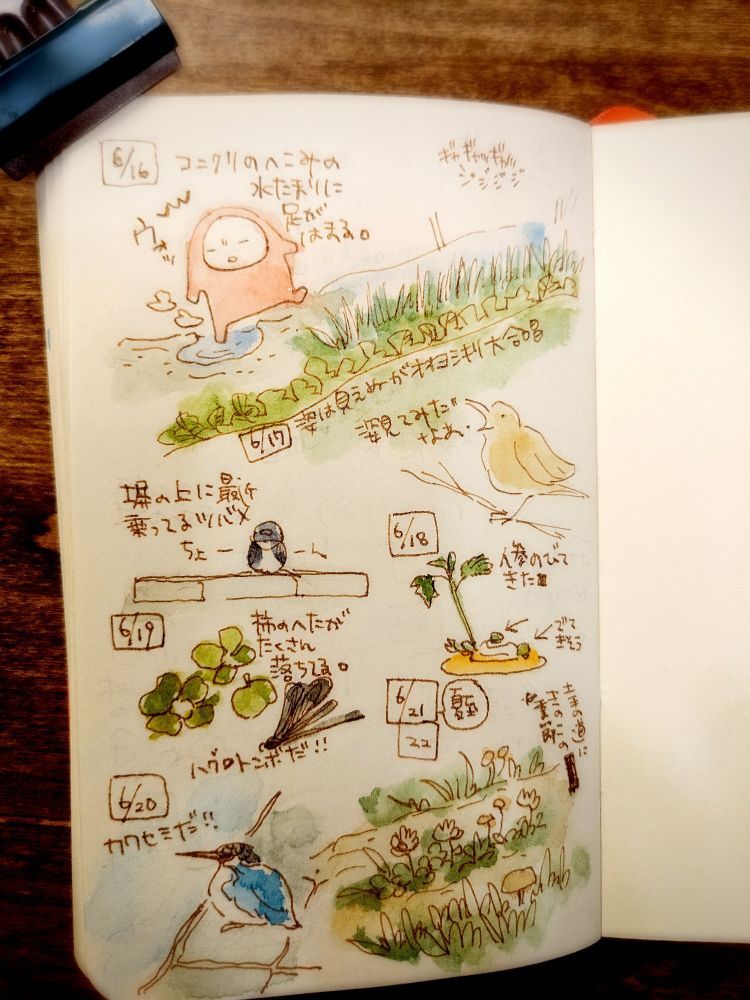 6/16
コニクリのへこみの
水たまりに
足が
はまる。
ウォッ
ギャギャッギャッ
ジジジジ
6/17
姿は見えぬがオオヨシキリ大合唱
姿見てみたい
なあ。
塀の上に最近
乗ってるツバメ
ちょーん
6/18
人参のびて
きた
でて
きそう
6/19
柿のへたが
たくさん
落ちてる。
ハグロトンボだ!!
6/20
カワセミだっ!!
6/21
22
夏至
土手の道に
きのこの
季節